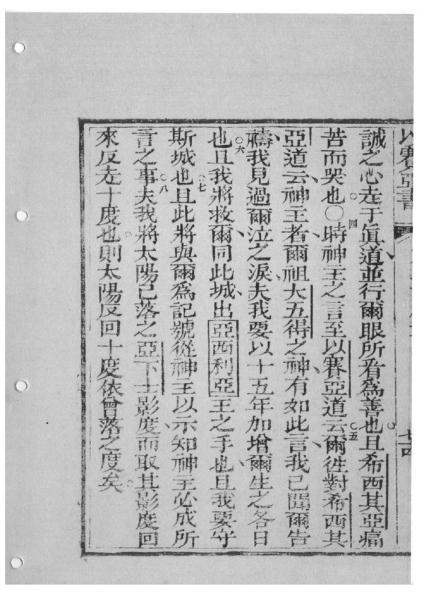 以賽亞書
七四
誠之心在于眞道並行爾眼所看爲善也且希西其亞痛
苦而哭也〇四時神王之言至以賽亞道云五爾徃對希西其
亞道云神王者爾祖大五得之神有如此言我已聞爾告
禱我見過爾泣之淚夫我要以十五年加增爾生之各日
也六且我將救爾同此城出亞西利亞王之手也且我要守
斯城也七且此將與爾爲記號從神王以示知神王必成所
言之事八夫我將太陽已落之亞下士影度而取其影度回
來反在十度也則太陽反回十度依曾落之度矣